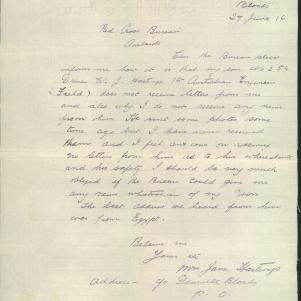 Blonds
27 June 16
Red Cross Bureau
Adelaide
Can the Bureau please
inform me how it is that my son
Driver W. J. Hastings 1st Australian
(Field) does not receive letters from me
and also why I do not receive any news
from him He sent some photos some
time ago but I have never received
them and I feel anxious on receiving
no letters from him as to his whereabouts
and his safety I should be very much
obliged if the Bureau could give me
any news whatsoever of my son
The last address we heard from him
was from Egypt.
Believe me
Yours etc
Mrs Jane Hastings
Address - c/o
P. O.